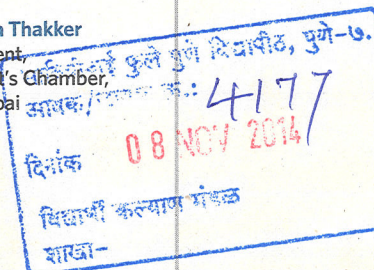 Thakker
ent,
's Chamber,
bai
सावित्रीबाई फुले पुणे विद्यापीठ, पुणे-७.
आवक/जावक क्र.: 4177
दिनांक 08 NOV 2014
विद्यार्थी कल्याण मंडळ
शाखा-